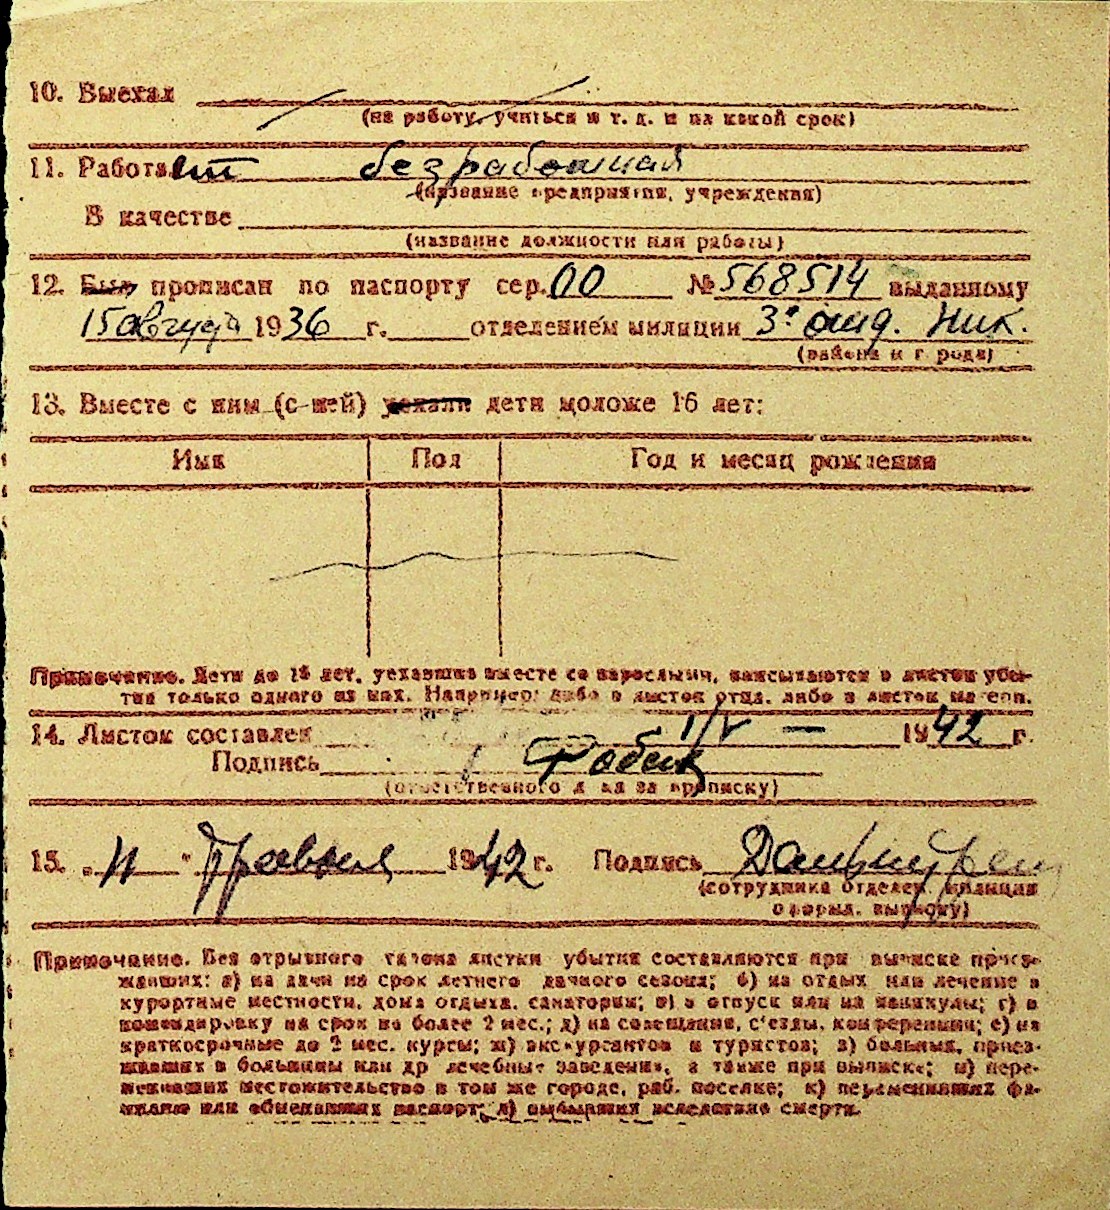 10. Выехал
(на работу, учиться и т. д. и на какой срок)
11. Работает безработная
(название предприятия, учреждения)
В качестве
(название должности или работы)
12. Был прописан по паспорту сер. 00 № 568514 выданному
15 августа 1936 г. отделением милиции 3е отд. Ник.
(района и города)
13. Вместе с ним (с ней) уехали дети моложе 16 лет:
Имя Пол Год и месяц рождения
Примечание. Дети до 16 лет, уехавшие вместе со взрослыми, вписываются в листок убы-
тия только одного из них. Например: либо в листок отца, либо в листок матери.
14. Листок составлен 1/V — 1942 г.
Подпись
(ответственного лица за прописку)
15. „ 11 " 1942 г. Подпись
(сотрудника отделен. милиции
оформл. выписку)
Примечание. Без отрывного талона листки убытия составляются при выписке приез-
жавших: а) на дачи на срок летнего дачного сезона; б) на отдых или лечение в
курортные местности, дома отдыха, санатории; в) в отпуск или на каникулы; г) в
командировку на срок не более 2 мес.; д) на совещания, с'езды, конференции; е) на
краткосрочные до 2 мес. курсы; ж) экскурсантов и туристов; з) больных, приез-
жавших в больницы или др лечебные заведения, а также при выписке; и) пере-
менивших местожительство в том же городе, раб. поселке; к) переменивших фа-
милию или обменявших паспорт; л) выбывших вследствие смерти.